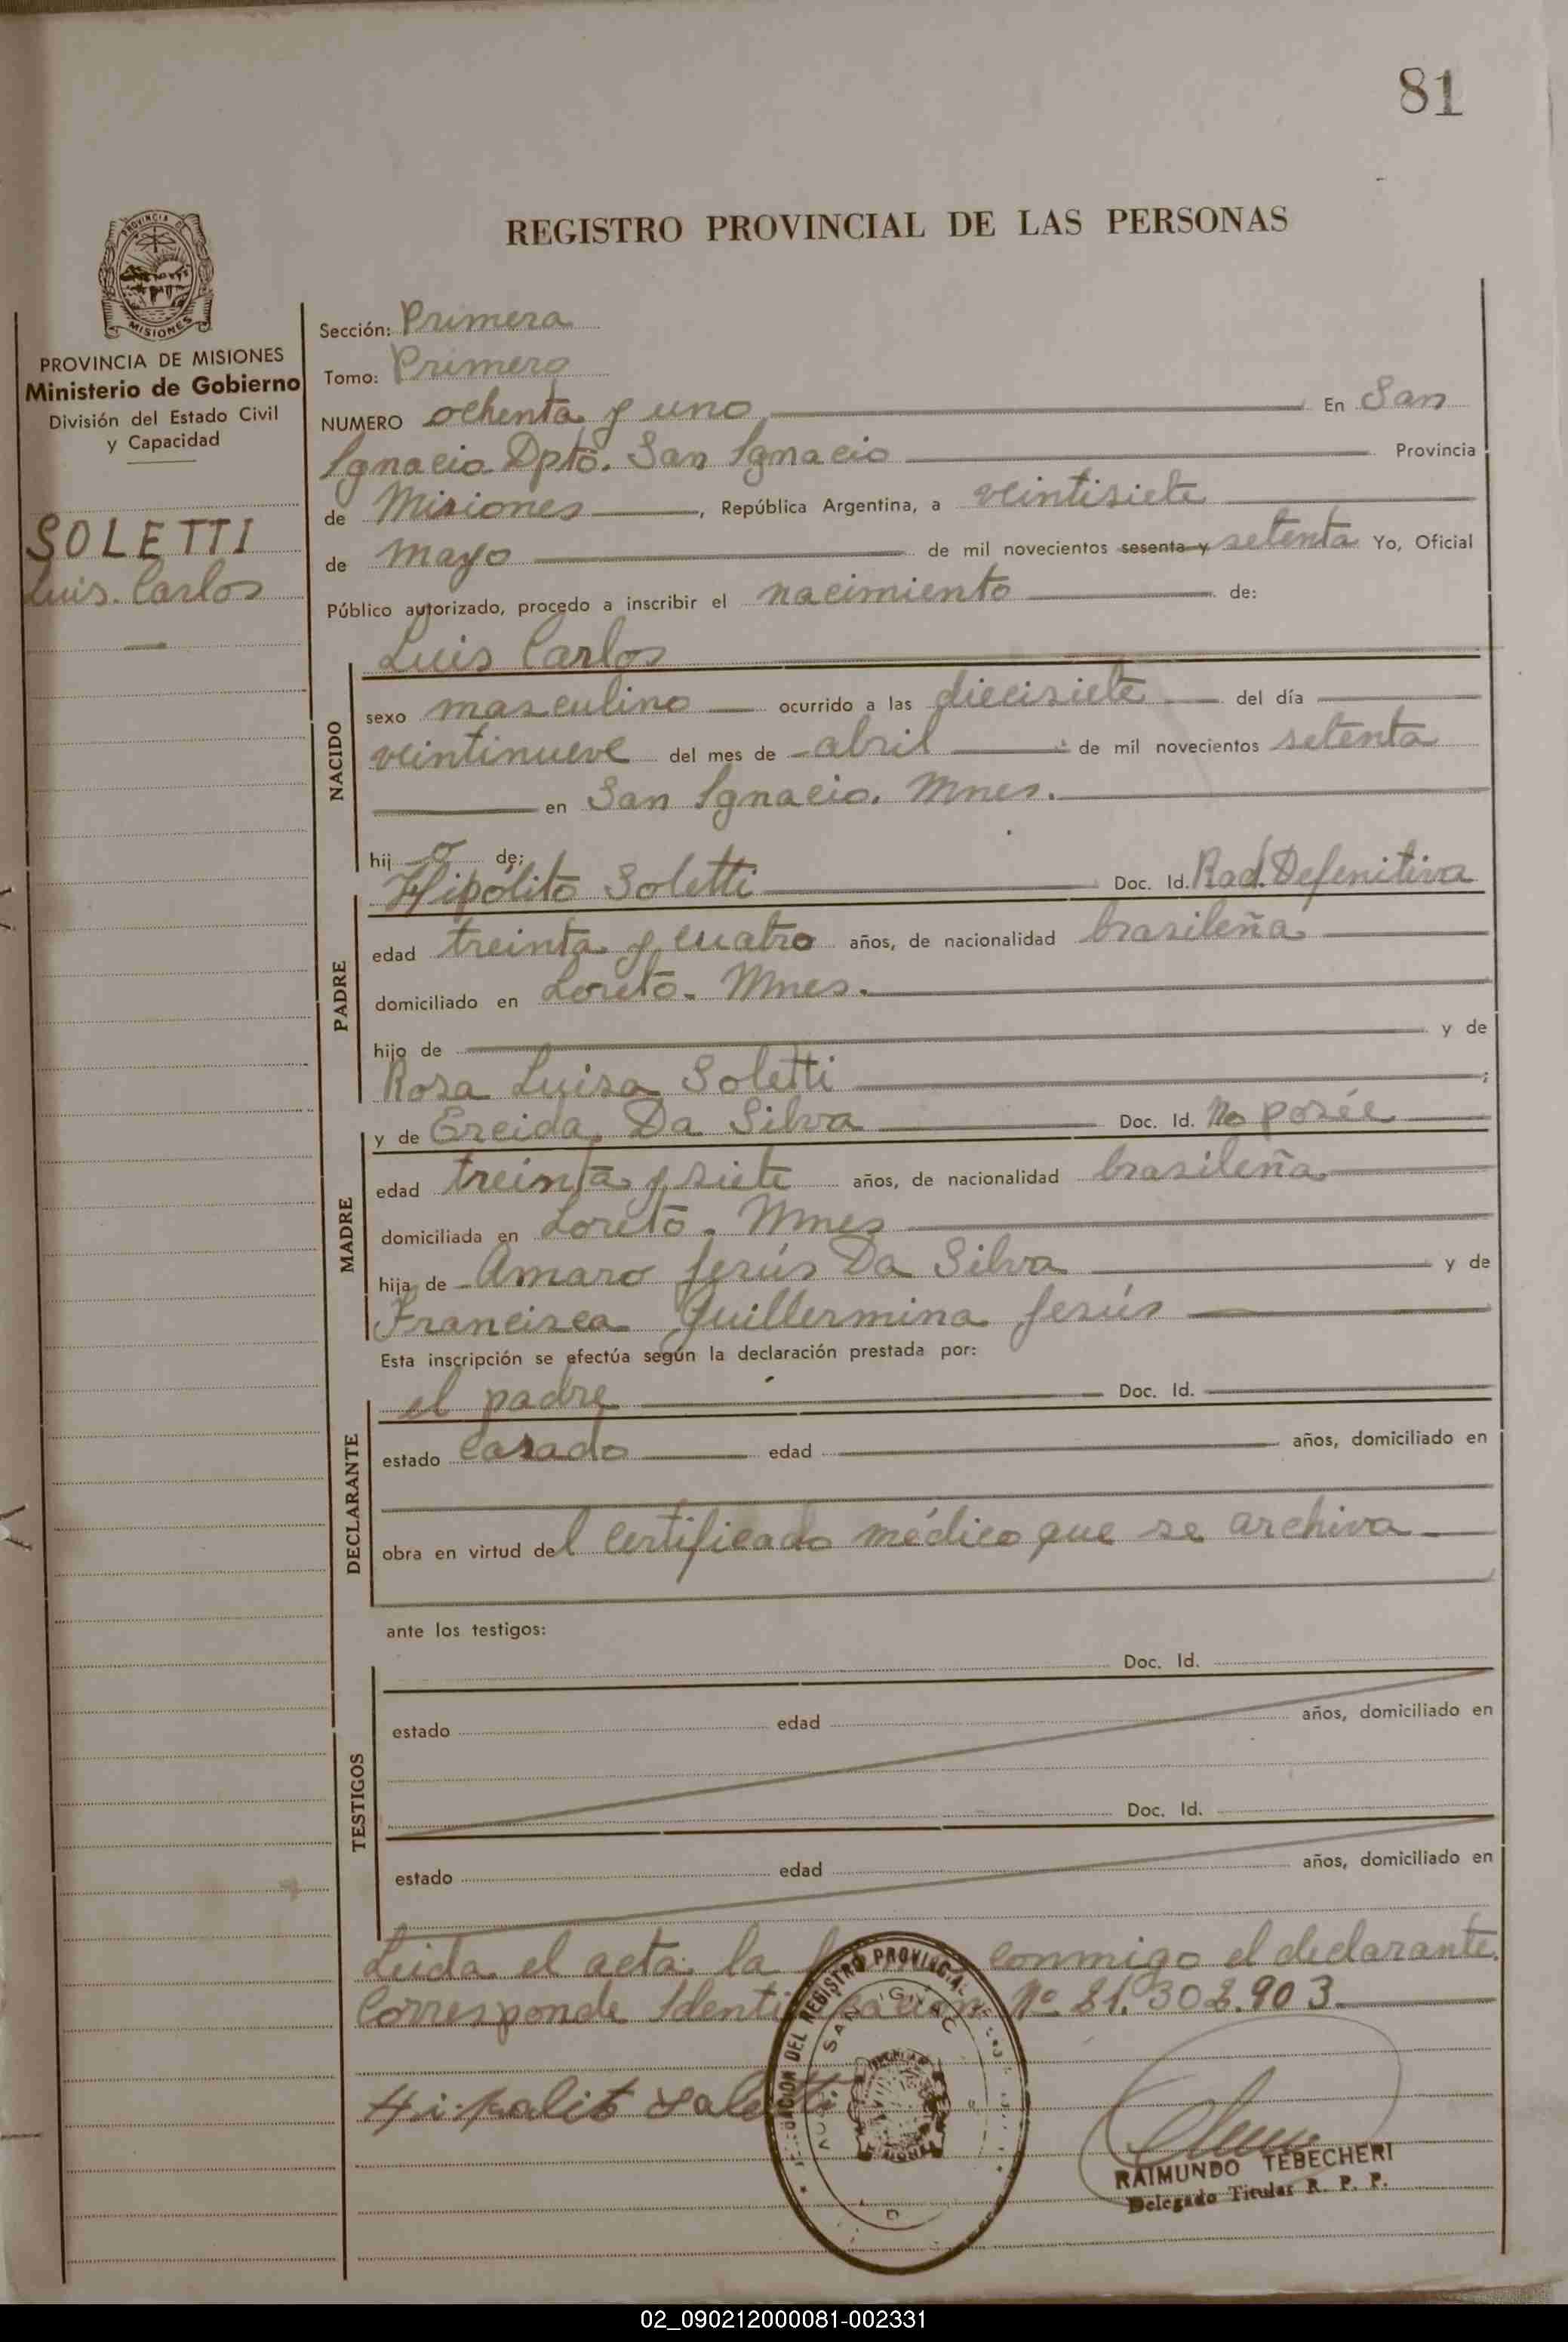 81
REGISTRO PROVINCIAL DE LAS PERSONAS
PROVINCIA DE MISIONES
Ministerio de Gobierno
División del Estado Civil
y Capacidad
SOLETTI
Luis Carlos
Sección: Primera
Tomo: Primero
NUMERO ochenta y uno En San
Ignacio Dpto. San Ignacio Provincia
de Misiones, República Argentina, a veintisiete
de mayo de mil novecientos sesenta y setenta Yo, Oficial
Público autorizado, procedo a inscribir el nacimiento de:
Luis Carlos
NACIDO
sexo masculino ocurrido a las diecisiete del día
veintinueve del mes de abril de mil novecientos setenta
en San Ignacio. Mnes.
hij o de:
Hipólito Soletti Doc. Id. Rad. Defenitiva
PADRE
edad treinta y cuatro años, de nacionalidad brasileña
domiciliado en Loreto. Mnes.
hijo de y de
Rosa Luisa Soletti ;
y de Ereida Da Silva Doc. Id. No posée
MADRE
edad treinta y siete años, de nacionalidad brasileña
domiciliada en Loreto. Mnes
hija de Amaro Jesús Da Silva y de
Francisca Guillermina Jesús
Esta inscripción se efectúa según la declaración prestada por:
el padre Doc. Id.
DECLARANTE
estado Casado edad años, domiciliado en
obra en virtud del certificado médico que se archiva
ante los testigos:
Doc. Id.
TESTIGOS
estado edad años, domiciliado en
Doc. Id.
estado edad años, domiciliado en
Leida el acta la conmigo el declarante.
Corresponde Identificación Nº 21.302.903.
Hipolito Soletti
DEL REGISTRO PROVINCIAL
SAN IGNACIO
RAIMUNDO TEBECHERI
Delegado Titular R. P. P.
02_090212000081-002331